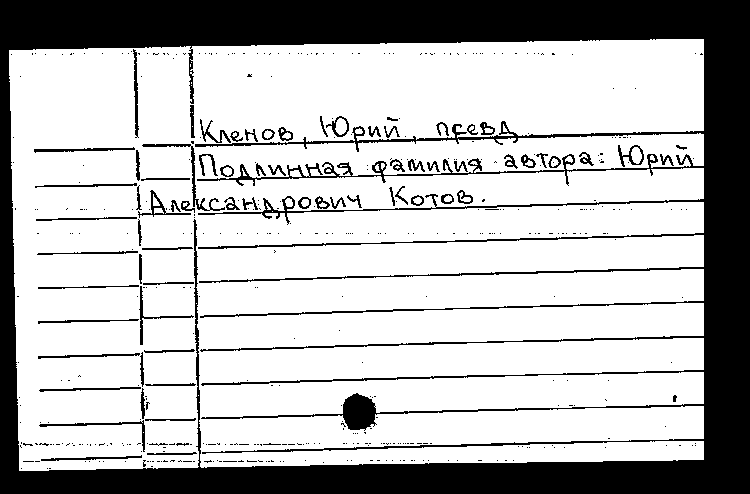 Кленов, Юрий, псевд
Подлинная фамилия автора: Юрий
Александрович Котов.